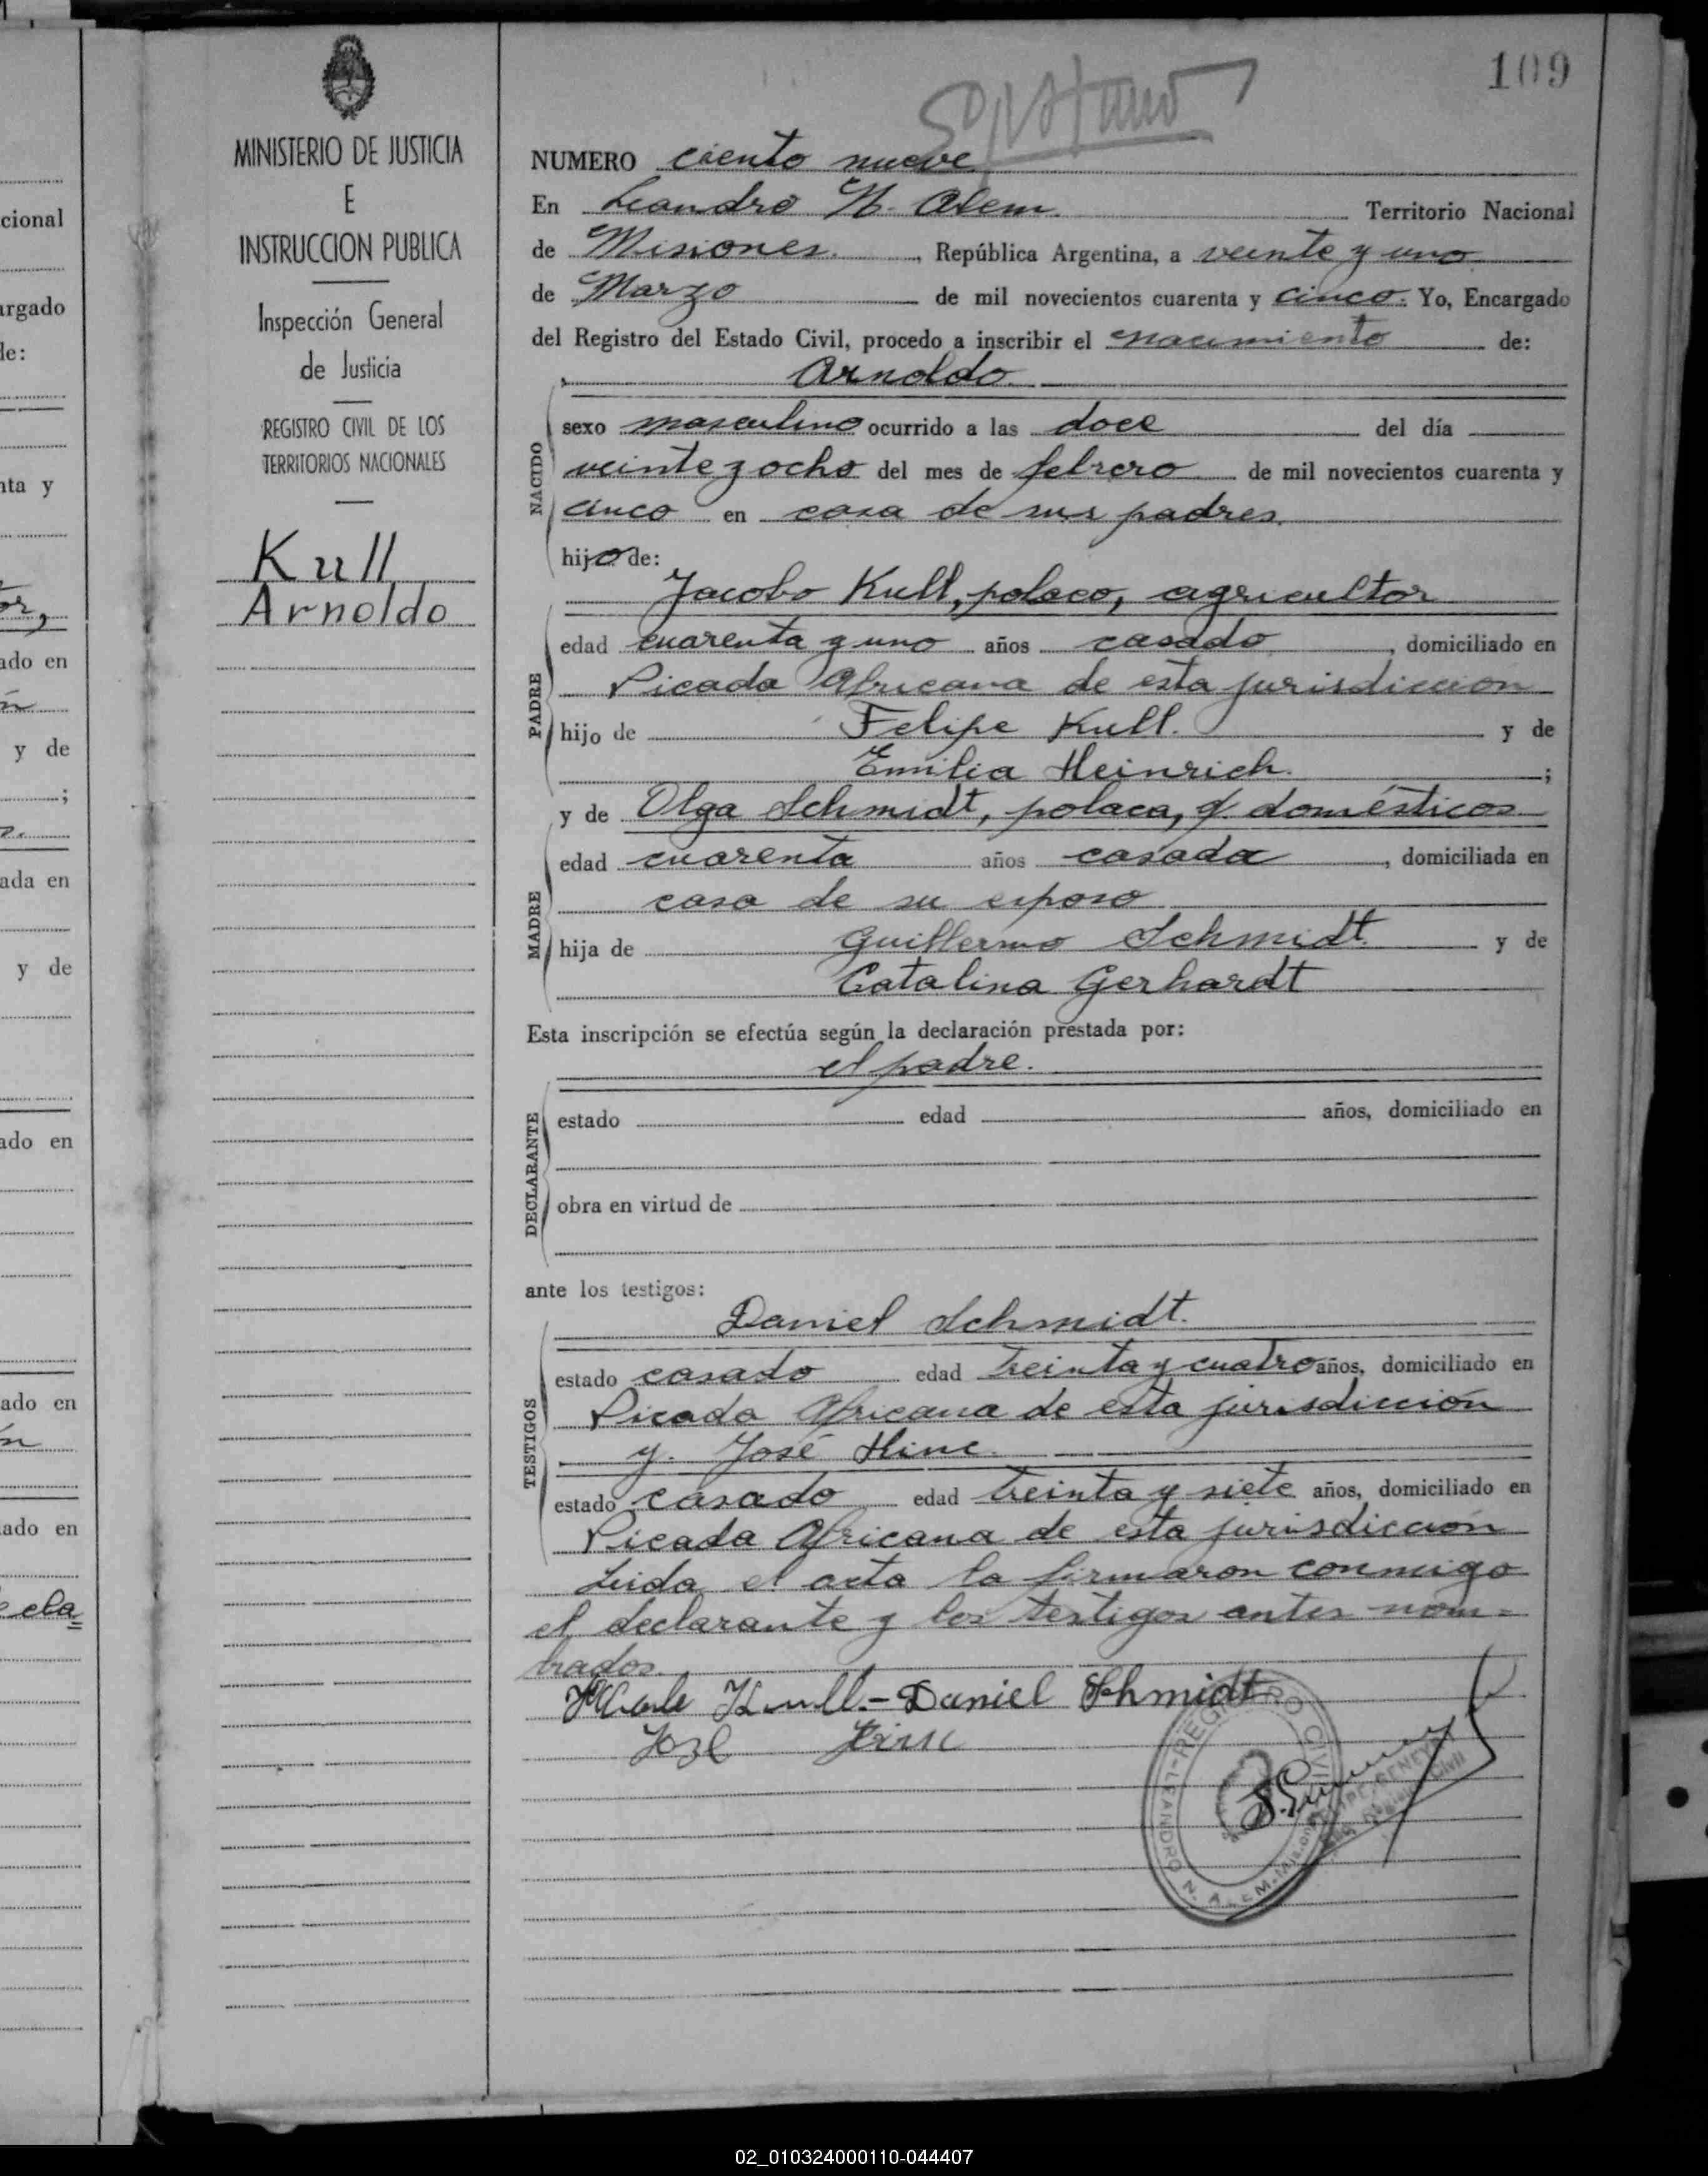 cional
argado
de:
nta y
or,
ado en
ón
y de
;
ada en
y de
ado en
ado en
ón
ado en
cla=
MINISTERIO DE JUSTICIA
E
INSTRUCCION PUBLICA
Inspección General
de Justicia
REGISTRO CIVIL DE LOS
TERRITORIOS NACIONALES
Kull
Arnoldo
109
NUMERO ciento nueve
En Leandro N. Alem. Territorio Nacional
de Misiones. , República Argentina, a veinte y uno
de Marzo de mil novecientos cuarenta y cinco. Yo, Encargado
del Registro del Estado Civil, procedo a inscribir el nacimiento de:
Arnoldo.
NACIDO
sexo masculino ocurrido a las doce del día
veinte y ocho del mes de febrero de mil novecientos cuarenta y
cinco en casa de sus padres.
hijo de:
Jacobo Kull, polaco, agricultor
PADRE
edad cuarenta y uno años casado , domiciliado en
Picada Africana de esta jurisdiccion
hijo de Felipe Kull. y de
Emilia Heinrich. ;
y de Olga Schmidt, polaca, q. domésticos
MADRE
edad cuarenta años casada , domiciliada en
casa de su esposo
hija de Guillermo Schmidt y de
Catalina Gerhardt
Esta inscripción se efectúa según la declaración prestada por:
el padre.
DECLARANTE
estado edad años, domiciliado en
obra en virtud de
ante los testigos:
Daniel Schmidt.
TESTIGOS
estado casado edad treinta y cuatro años, domiciliado en
Picada Africana de esta jurisdicción
y. José Hinc.
estado casado edad treinta y siete años, domiciliado en
Picada Africana de esta jurisdicción
Leida el acta la firmaron conmigo
el declarante y los testigos antes nom-
brados.
Kull - Daniel Schmidt
REGISTRO CIVIL
LEANDRO N. ALEM - Misiones
Registro Civil
02_010324000110-044407